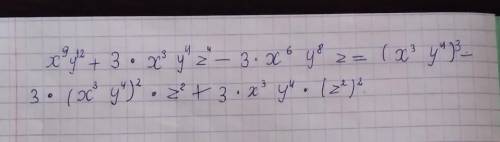 x⁹y¹² + 3 · x³ y⁴ z⁴ − 3 · x⁶ y⁸ z = (x³ y⁴)³ −
3 · (x³ y⁴)² · z² + 3 · x³ y⁴ · (z²)²